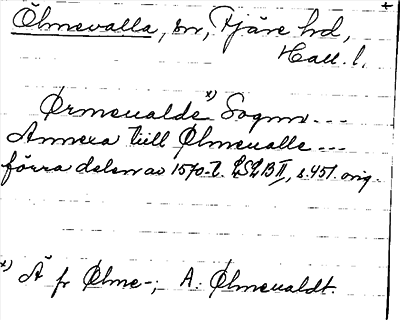 Ölmevalla, sn, Fjäre hd,
Hall. l.
Ørmeualde x) Sognn ...
Annexa till Ølmeualle ...
förra delen av 1570-t. LSLB II, s. 451. orig.
x) Ä fr Ølme-; A: Ølmeualdt.